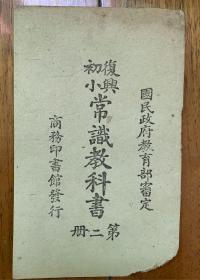 國民政府教育部審定
復興
初小
常識教科書
第二册
商務印書館發行